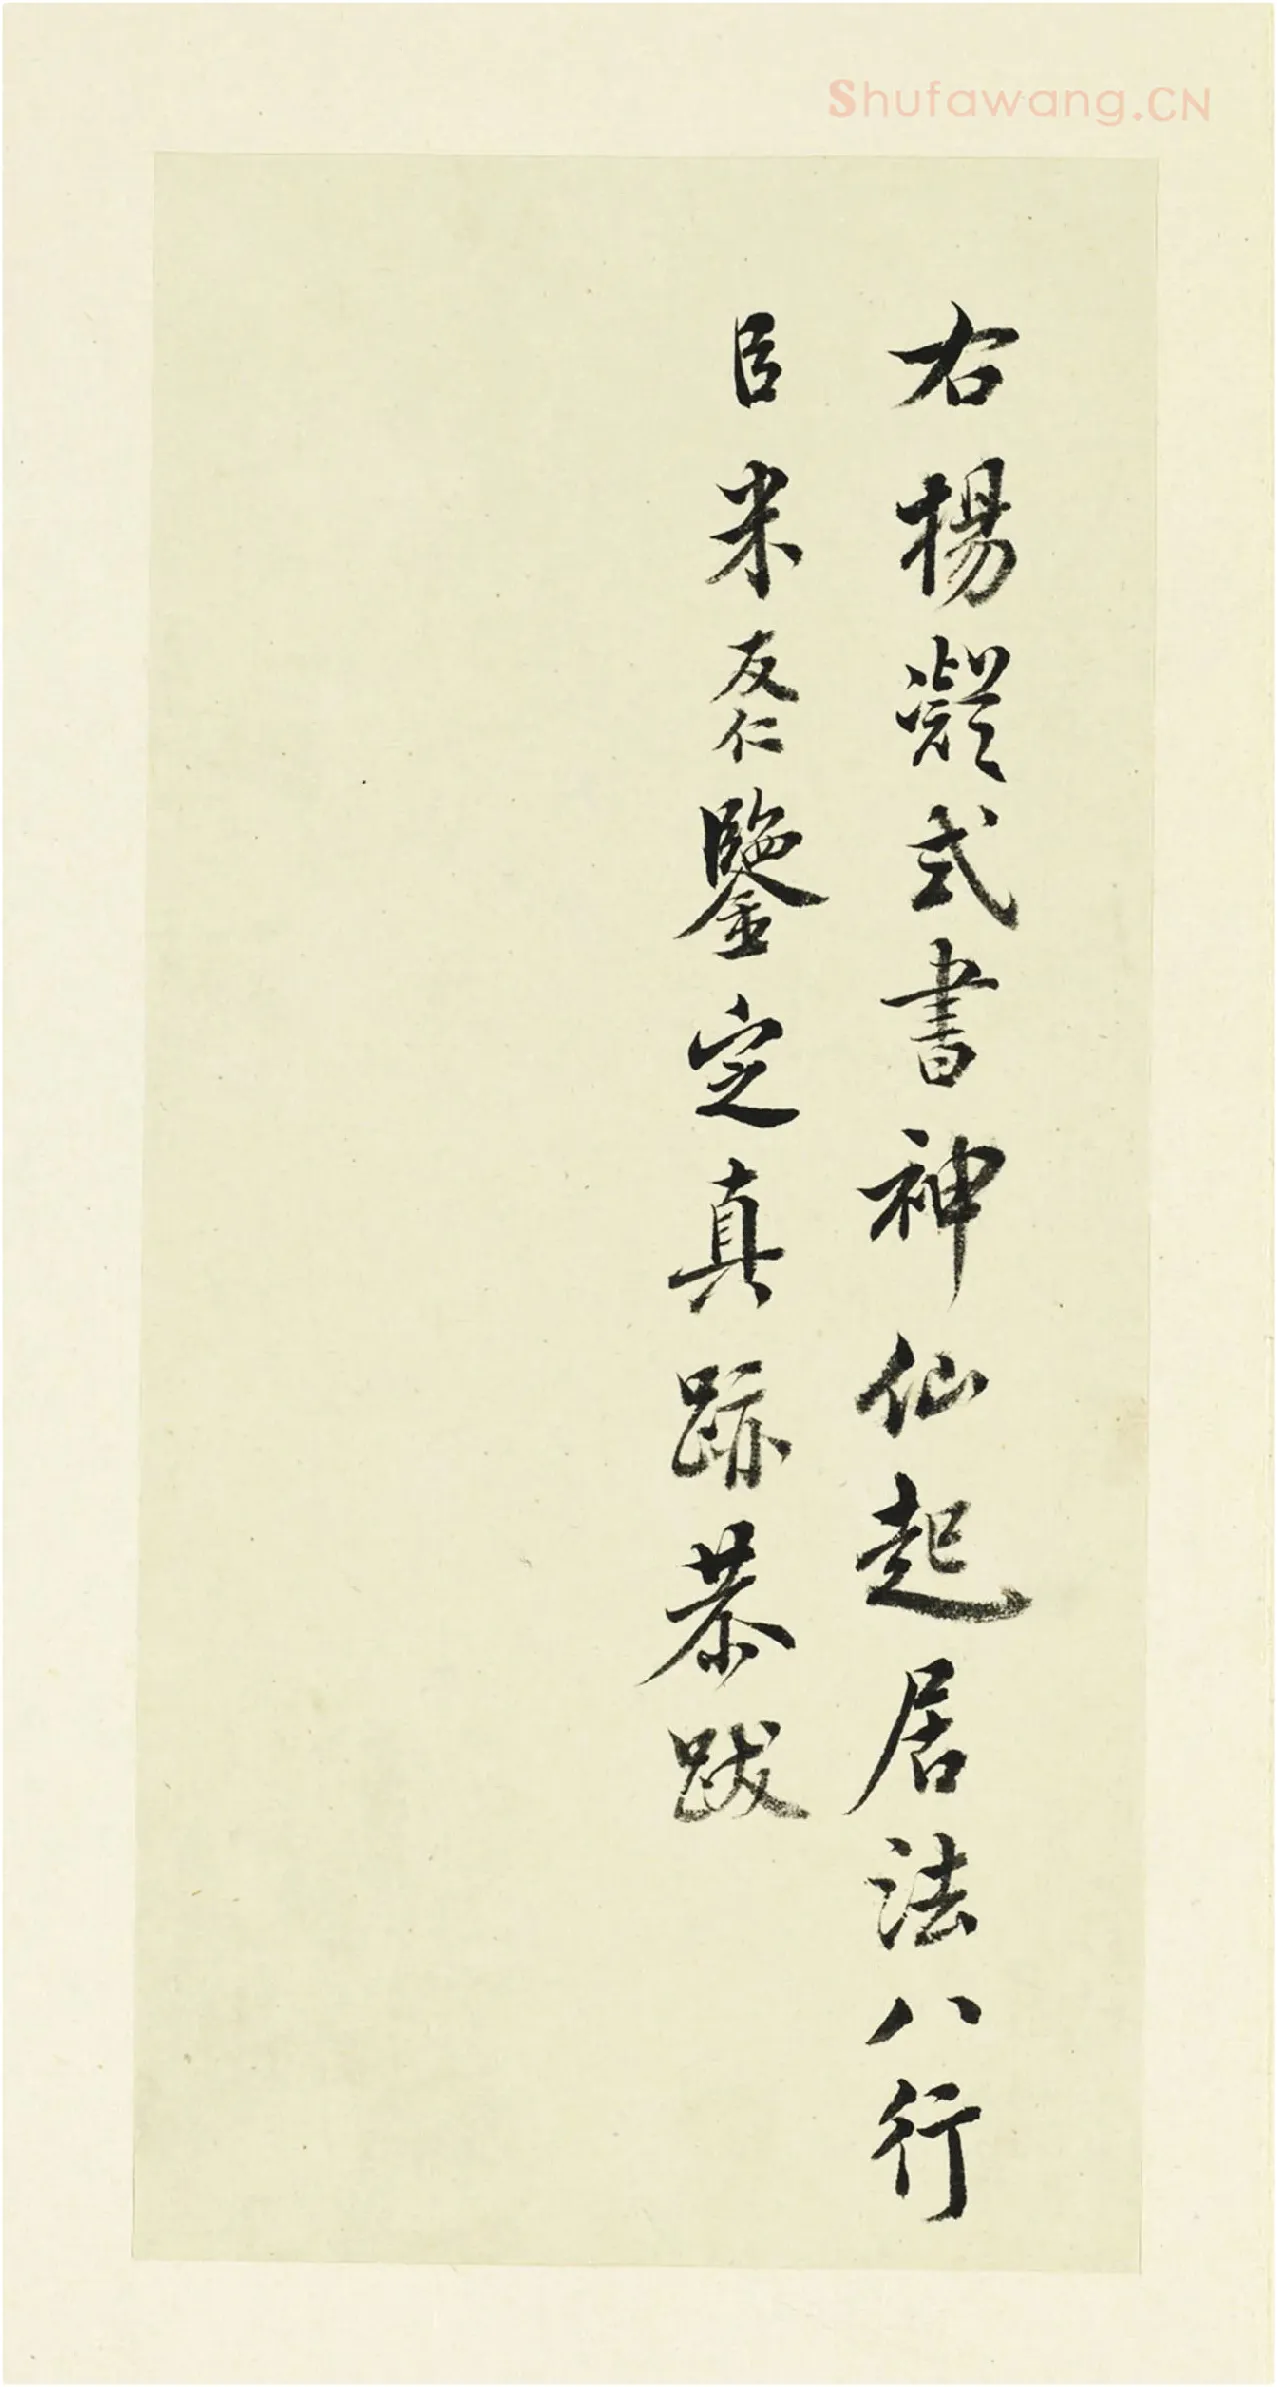 Shufawang.CN
右楊凝式書神仙起居法八行
臣米友仁鑒定真跡恭跋